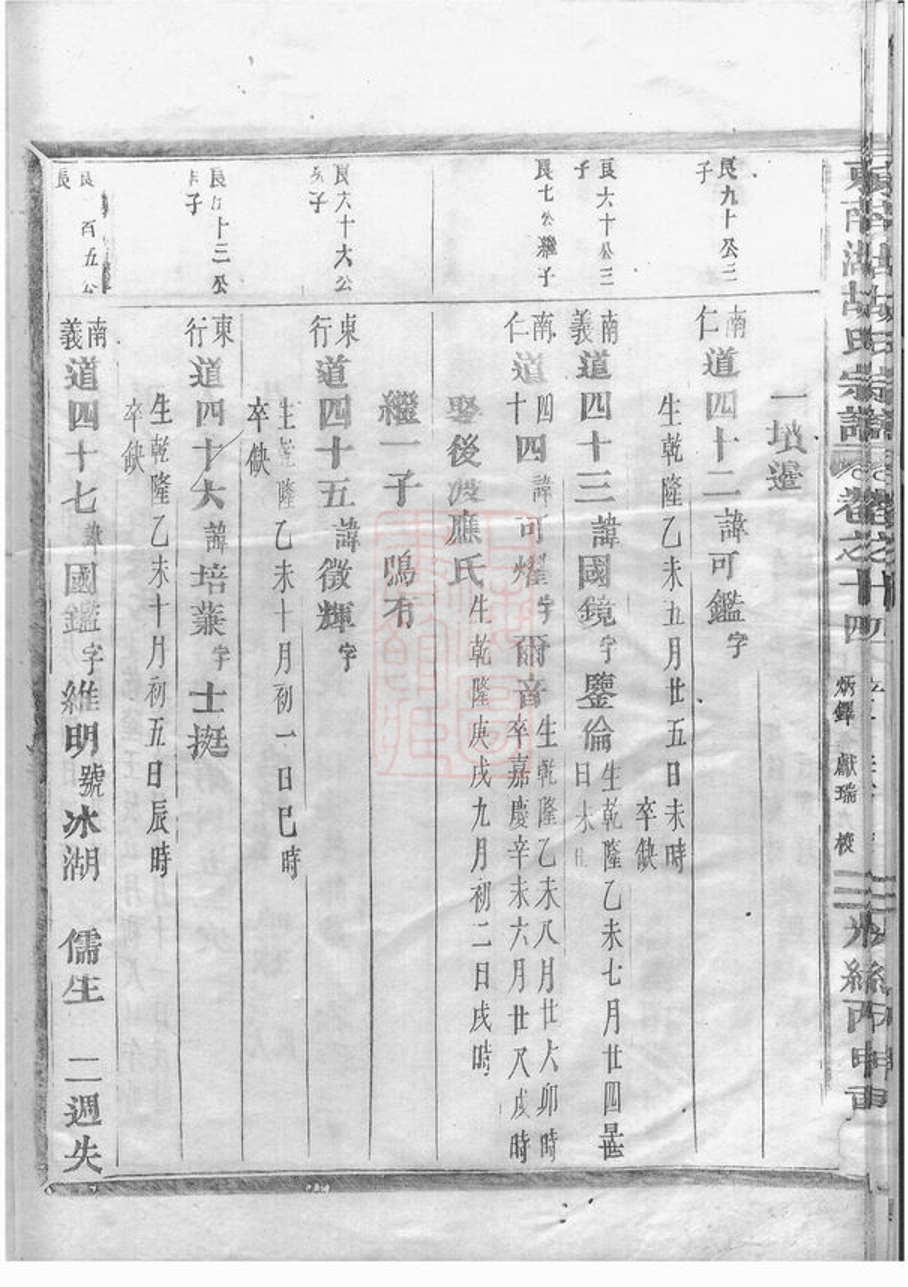 南湖胡氏宗譜 卷之十四
炳鐸 獻瑞 校
光緒丙申
一墳邊
良九十公三子
南仁 道四十二 諱可鑑 字
生乾隆乙未五月廿五日未時
卒缺
良六十公三子
南義 道四十三 諱國鏡 字鑒倫
生乾隆乙未七月廿四
日未
良七公繼子
南仁 道四十四 諱可燿 字爾音
生乾隆乙未八月廿六卯時
卒嘉慶辛未六月廿八戌時
娶後渡應氏
生乾隆庚戌九月初二日戌時
繼一子 鳴有
良六十六公
子
東行 道四十五 諱徵輝 字
生乾隆乙未十月初一日巳時
卒缺
十三公
子
東行 道四十六 諱培業 字士挺
生乾隆乙未十月初五日辰時
卒缺
良一百五公
長
南義 道四十七 諱國鑑 字維明 號冰湖 儒生 二週失